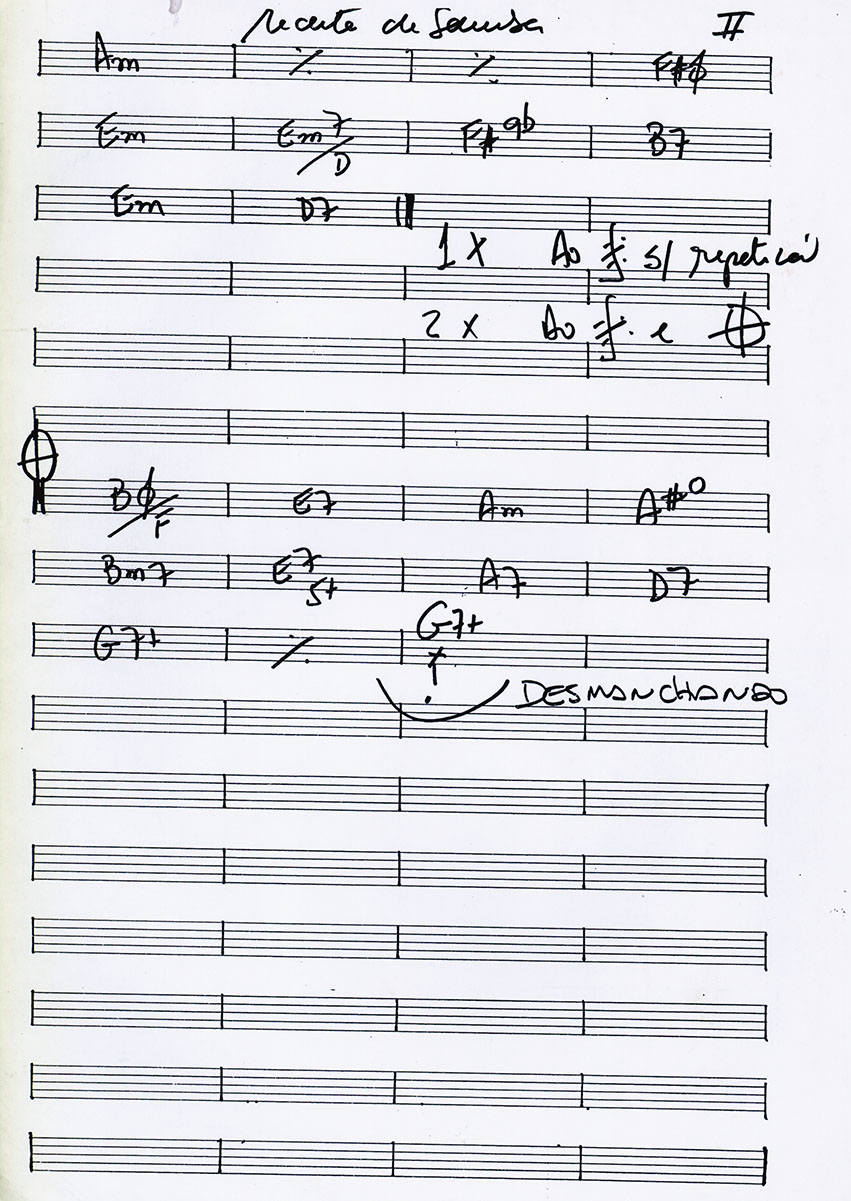 Receita de Samba II
Am ٪ ٪ F#ø
Em Em7/D F#9b B7
Em D7
1 X Ao 𝄋 s/ repetição
2 X Ao 𝄋 e 𝄌
𝄌
Bø/F E7 Am A#o
Bm7 E7 5+ A7 D7
G7+ ٪ G7+
DESMANCHANDO